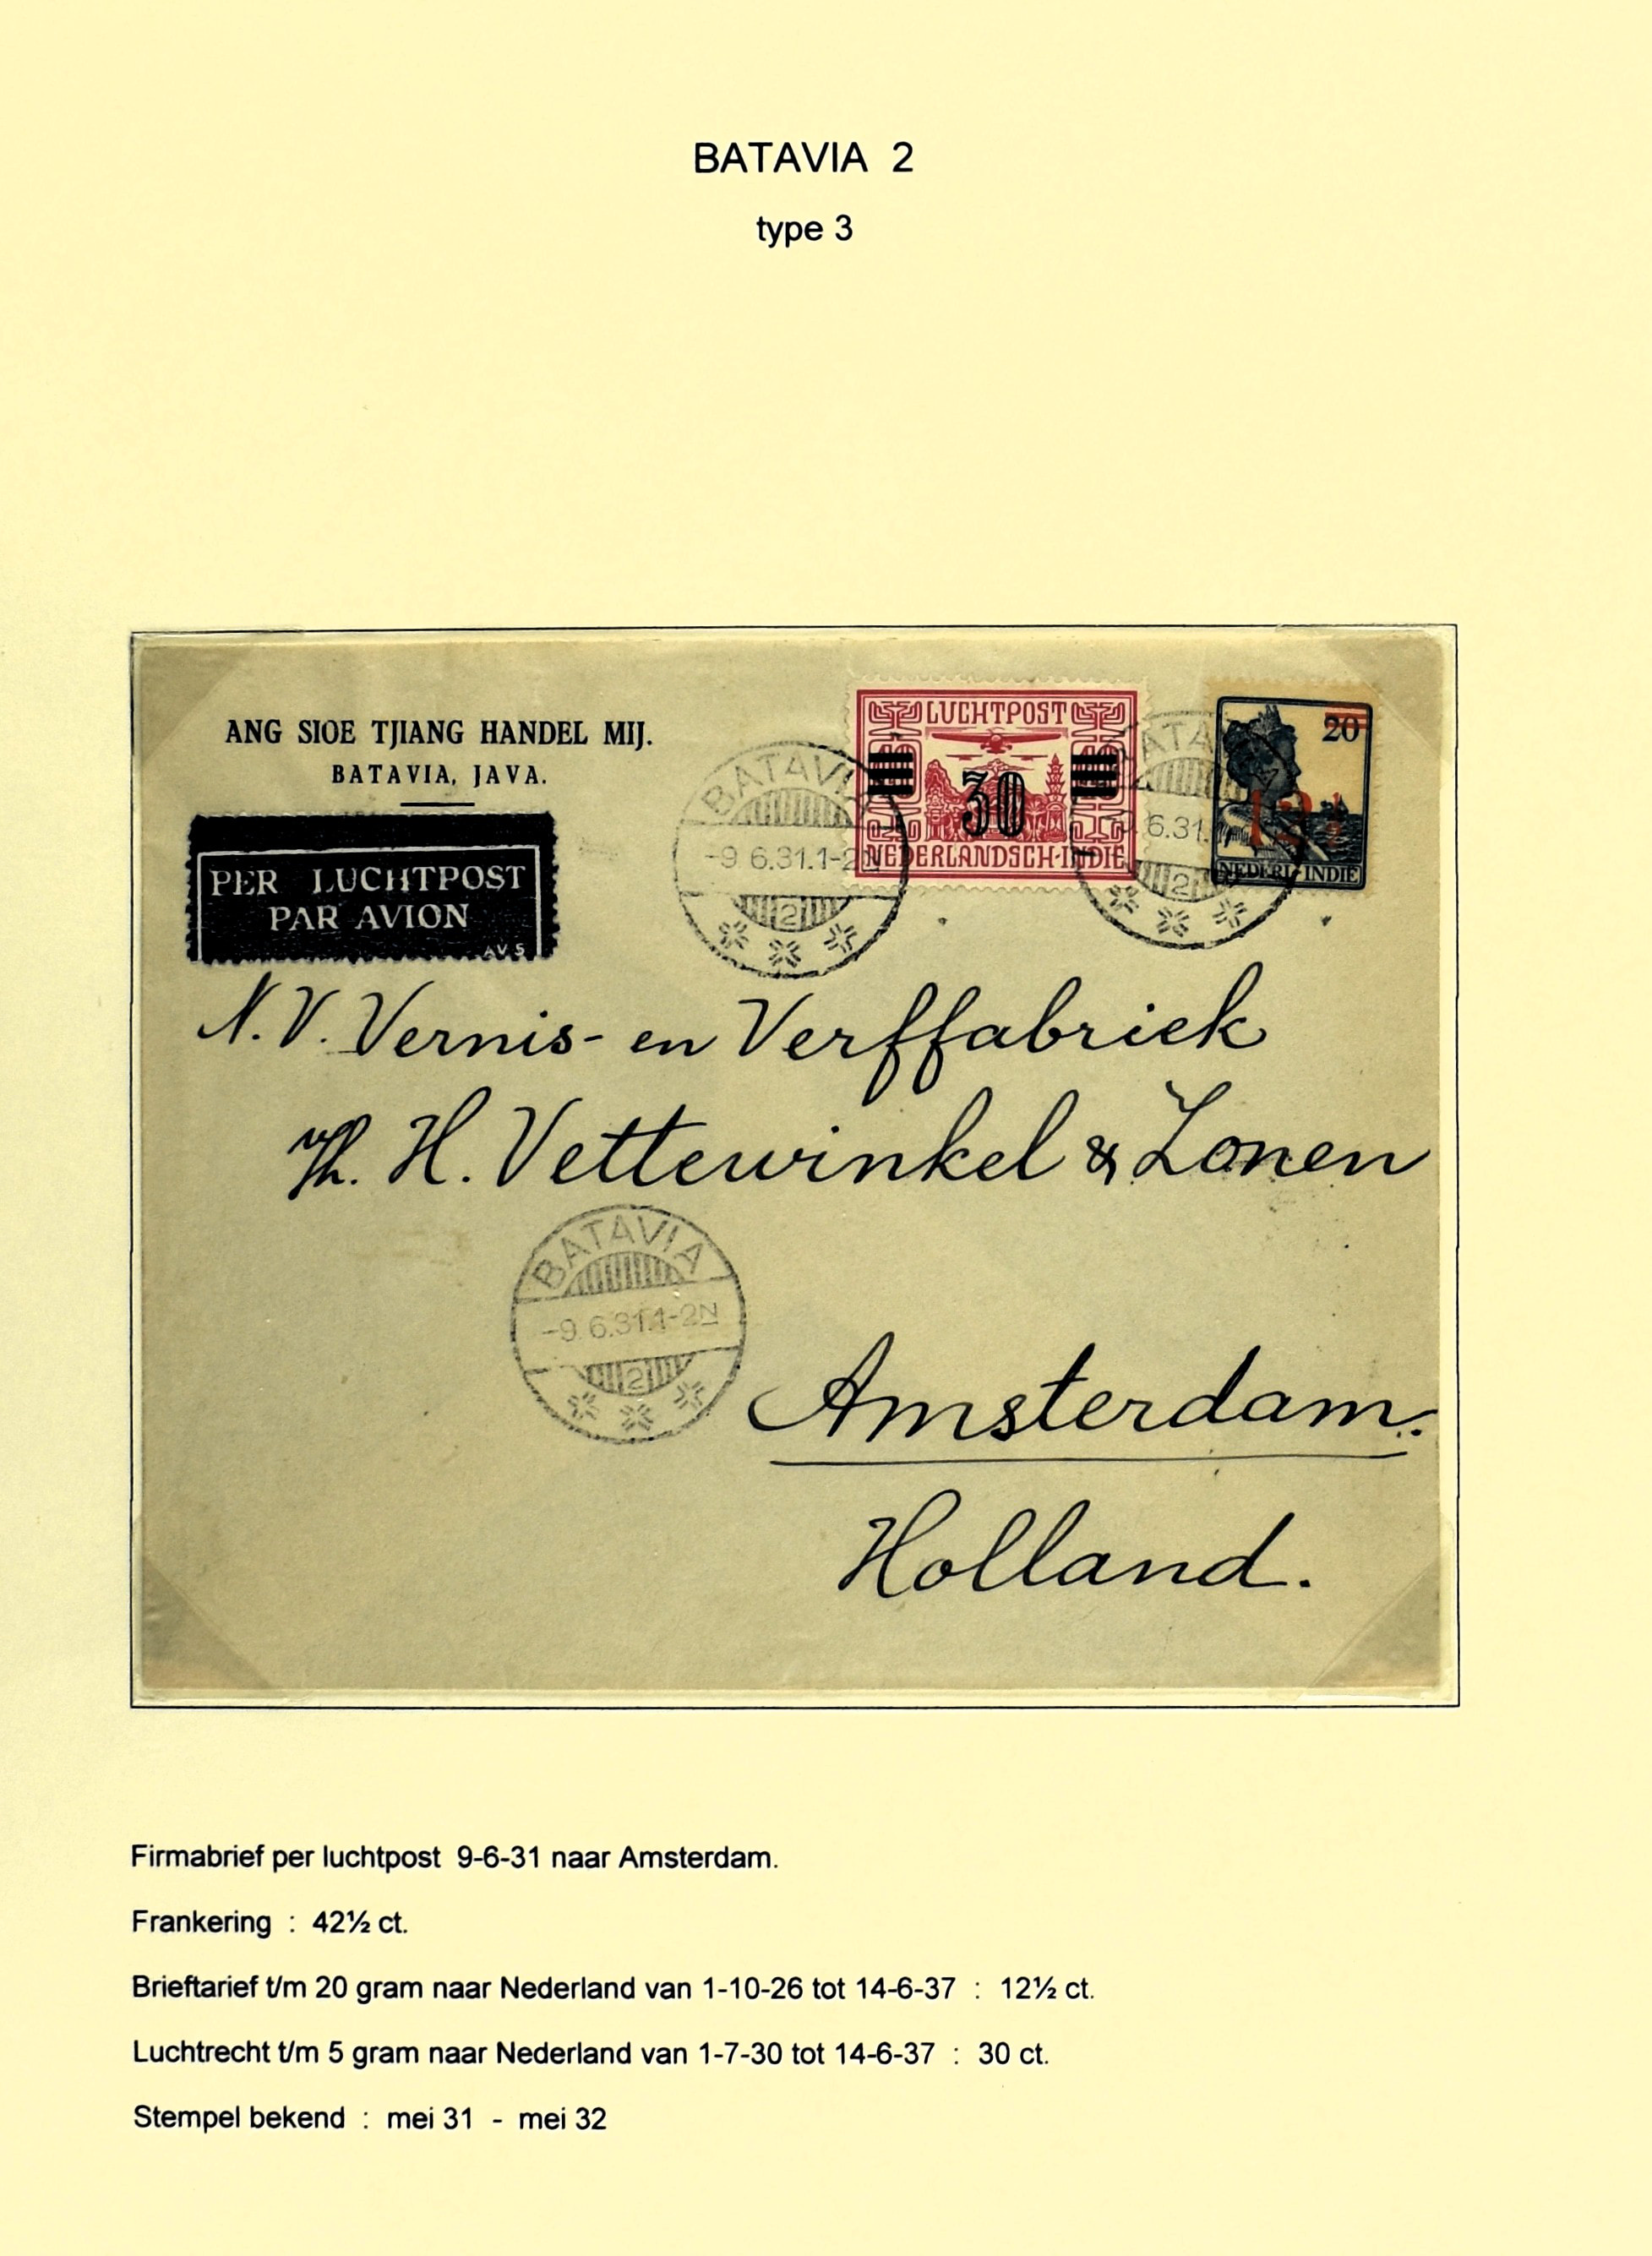 BATAVIA 2
type 3
ANG SIOE TJIANG HANDEL MIJ.
BATAVIA, JAVA.
PER LUCHTPOST
PAR AVION
AV 5
LUCHTPOST
30
NEDERLANDSCH-INDIË
20
12½
NEDERL-INDIË
BATAVIA
-9 6.31.1-2N
2
BATA
6.31.
2
N.V. Vernis- en Verffabriek
Th. H. Vettewinkel & Zonen
BATAVIA
-9 6.31.1-2N
2
Amsterdam.
Holland.
Firmabrief per luchtpost 9-6-31 naar Amsterdam.
Frankering : 42½ ct.
Brieftarief t/m 20 gram naar Nederland van 1-10-26 tot 14-6-37 : 12½ ct.
Luchtrecht t/m 5 gram naar Nederland van 1-7-30 tot 14-6-37 : 30 ct.
Stempel bekend : mei 31 - mei 32